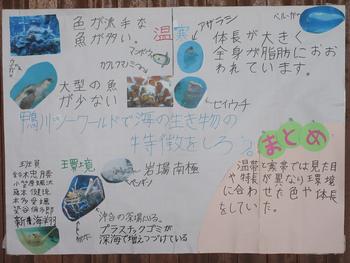 色が派手な
魚が多い。
温
寒
アザラシ
ベルーガ
体長が大きく
全身が脂肪におお
われています。
マンボウ
カクレクマノミ
大型の魚
が少ない
セイウチ
鴨川シーワールドで海の生き物の
特徴をしろう
まとめ
温帯と寒帯では見た目
や特長が異なり環境
に合わせた色や体長
をしていた。
班員
環境
岩場 南極
ペンギン
沖合の深場にいる。
プラスチックゴミが
深海で増えつづけている